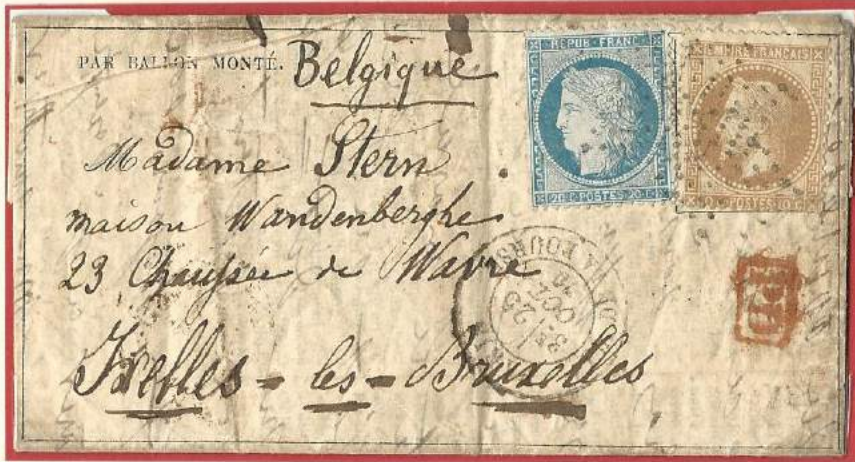 PAR BALLON MONTÉ.
Belgique
REPUB. FRANC.
20 C. POSTES 20 C.
EMPIRE FRANÇAIS
POSTES
Madame Stern
maison Wandenberghe
23 Chaussée de Wavre
Ixelles-les-Bruxelles
25
OCT.
PD